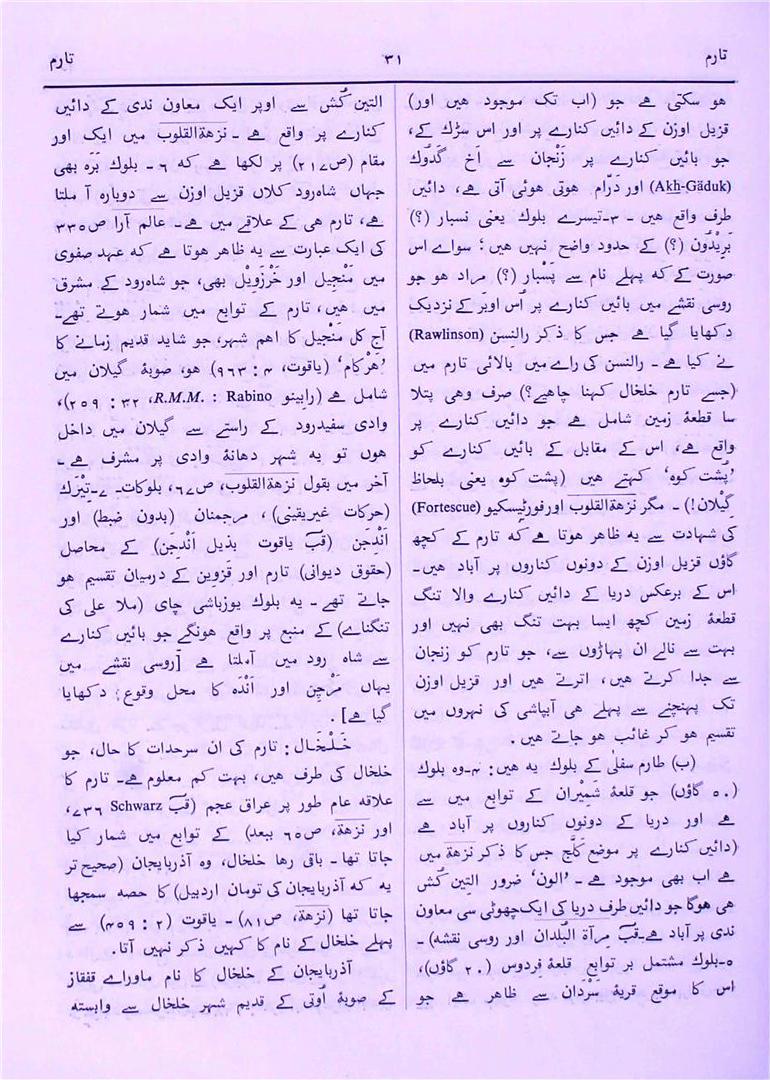 تارم
۳۱
تارم
هو سكتی هے جو (اب تک موجود هیں اور)
قزیل اوزن کے دائیں کنارے پر اور اس سڑک کے،
جو بائیں کنارے پر زَنْجان سے آخ گَدُوك
(Akh-Gäduk) اور دَرّام هوتی هوئی آتی هے، دائیں
طرف واقع هیں - ۳-تیسرے بلوك یعنی نسبار (؟)
بَرِیْدُون (؟) کے حدود واضح نہیں هیں؛ سواے اس
صورت کے که پہلے نام سے پَسْبار (؟) مراد هو جو
روسی نقشے میں بائیں کنارے پر اُس اوبَر کے نزدیک
دکھایا گیا هے جس کا ذکر رالنسن (Rawlinson)
نے کیا هے - رالنسن کی راے میں بالائی تارم میں
(جسے تارم خلخال کہنا چاهیے؟) صرف وهی پتلا
سا قطعهٔ زمین شامل هے جو دائیں کنارے پر
واقع هے، اس کے مقابل کے بائیں کنارے کو
’پُشت کوہ‘ کہتے هیں (پشت کوہ یعنی بلحاظ
گیلان!) - مگر نزهة القلوب اور فورٹیسکیو (Fortescue)
کی شہادت سے یه ظاهر هوتا هے که تارم کے کچھ
گاؤں قزیل اوزن کے دونوں کناروں پر آباد هیں-
اس کے برعکس دریا کے دائیں کنارے والا تنگ
قطعهٔ زمین کچھ ایسا بہت تنگ بھی نہیں اور
بہت سے نالے ان پہاڑوں سے، جو تارم کو زنجان
سے جدا کرتے هیں، اترتے هیں اور قزیل اوزن
تک پہنچنے سے پہلے هی آبپاشی کی نہروں میں
تقسیم هو کر غائب هو جاتے هیں.
(ب) طارم سفلی کے بلوك یه هیں: ۴-وہ بلوك
(۵۰ گاؤں) جو قلعهٔ شَمِیْران کے توابع میں سے
هے اور دریا کے دونوں کناروں پر آباد هے
(دائیں کنارے پر موضع کَلَّج جس کا ذکر نزهة میں
هے اب بھی موجود هے - ’الون‘ ضرور التِین کُش
هی هوگا جو دائیں طرف دریا کی ایک چھوٹی سی معاون
ندی پر آباد هے-قبَ مرآة البُلدان اور روسی نقشه) -
۵-بلوك مشتمل بر توابع قلعهٔ فِردوس (۲۰ گاؤں)،
اس کا موقع قریهٔ سَرْدان سے ظاهر هے جو
التین کُش سے اوپر ایک معاون ندی کے دائیں
کنارے پر واقع هے - نزهة القلوب میں ایک اور
مقام (ص ۲۱۷) پر لکھا هے که ۶ - بلوك بَرہ بھی
جہاں شاہ رود کلاں قزیل اوزن سے دوبارہ آ ملتا
هے، تارم هی کے علاقے میں هے - عالم آرا ص ۳۳۵
کی ایک عبارت سے یه ظاهر هوتا هے که عہد صفوی
میں مَنْجِیل اور خَرْزَوِیْل بھی، جو شاہ رود کے مشرق
میں هیں، تارم کے توابع میں شمار هوتے تھے-
آج کل مَنْجِیل کا اهم شہر، جو شاید قدیم زمانے کا
’هَرْکام‘ (یاقوت، ۴ : ۹۶۳) هو، صوبهٔ گیلان میں
شامل هے (رابینو R.M.M. : Rabino، ۳۲ : ۲۵۹)،
وادی سفیدرود کے راستے سے گیلان میں داخل
هوں تو یه شہر دهانهٔ وادی پر مشرف هے -
آخر میں بقول نزهة القلوب، ص ۶۷، بلوکات-۷-تِیْرَك
(حرکات غیریقینی)، مرجمنان (بدون ضبط) اور
اَنْدِجن (قبَ یاقوت بذیل اَنْدِجَن) کے محاصل
(حقوق دیوانی) تارم اور قزوین کے درمیان تقسیم هو
جاتے تھے - یه بلوك یوزباشی چای (ملا علی کی
تنگنائے) کے منبع پر واقع هونگے جو بائیں کنارے
سے شاہ رود میں آملتا هے [روسی نقشے میں
یہاں مَرْچِن اور اَنْدَہ کا محل وقوع دکھایا
گیا هے].
خَلْخال: تارم کی ان سرحدات کا حال، جو
خلخال کی طرف هیں، بہت کم معلوم هے- تارم کا
علاقه عام طور پر عراق عجم (قبَ Schwarz ۷۳۶،
اور نزهة، ص ۶۵ ببعد) کے توابع میں شمار کیا
جاتا تھا - باقی رها خلخال، وہ آذربایجان (صحیح تر
یه که آذربایجان کی تومان اردبیل) کا حصه سمجھا
جاتا تھا (نزهة، ص ۸۱) - یاقوت (۲ : ۴۵۹) سے
پہلے خلخال کے نام کا کہیں ذکر نہیں آتا.
آذربایجان کے خلخال کا نام ماوراے قفقاز
کے صوبهٔ اُوتی کے قدیم شہر خلخال سے وابسته